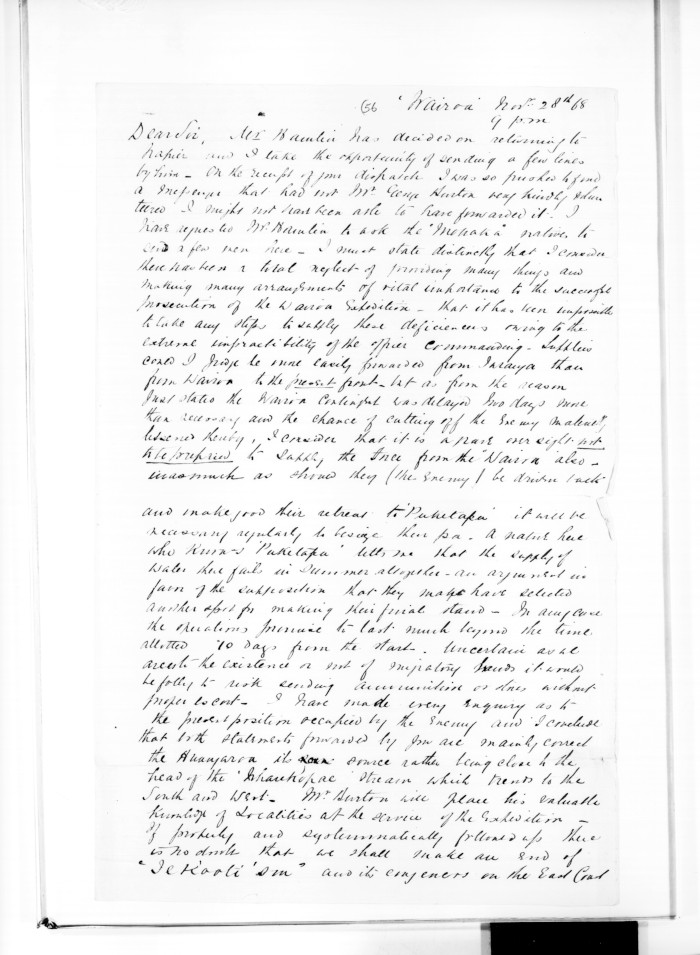 (56 "Wairoa" Novr. 28th 68
9 p.m
Dear Sir, Mr Hamlin has decided on returning to
Napier and I take the opportunity of sending a few lines
by him - On the receipt of your dispatch I was so pushed to find
a messenger that had not Mr. George Burton very kindly volun
teered I might not have been able to have forwarded it. I
have requested Mr. Hamlin to ask the "Mohaka" natives to
send a few men here - I must state distinctly that I consider
there has been a total neglect of providing many things and
making many arrangements of vital importance to the successful
prosecution of the Wairoa Expedition - that it has been impossible
to take any steps to satisfy these deficiencies owing to the
extreme impracticability of the officer commanding - Supplies
could I judge be more easily forwarded from Turanga than
from Wairoa to the present front - but as from the reason
just stated the Wairoa Contingent was delayed two days more
than necessary and the chance of cutting off the Enemy materially
lessened thereby, I consider that it is a grave oversight not
to be prepared to supply the Force from the "Wairoa" also -
inasmuch as should they (the Enemy) be driven back
and make good their retreat to "Puketapu" it will be
necessary regularly to besiege their pa. A native here
who knows "Puketapu" tells me that the supply of
water there fails in Summer altogether - an argument in
favor of the supposition that they may have selected
another spot for making their final stand - In any case
the operations promise to last much beyond the time
allotted 10 days from the start. Uncertain as we
are as to the existence or not of migratory bands it would
be folly to risk sending ammunition or stores without
proper escort - I have made every enquiry as to
the present position occupied by the Enemy and I conclude
that both statements forwarded by you are mainly correct
the Huangaroa its source rather being close to the
head of the Wharekopae Stream which trends to the
South and West - Mr. Burton will place his valuable
knowledge of Localities at the service of the Expedition -
If properly and systematically followed up there
is no doubt that we shall make an end of
"Te Kooti'sm" and its congeners on the East Coast